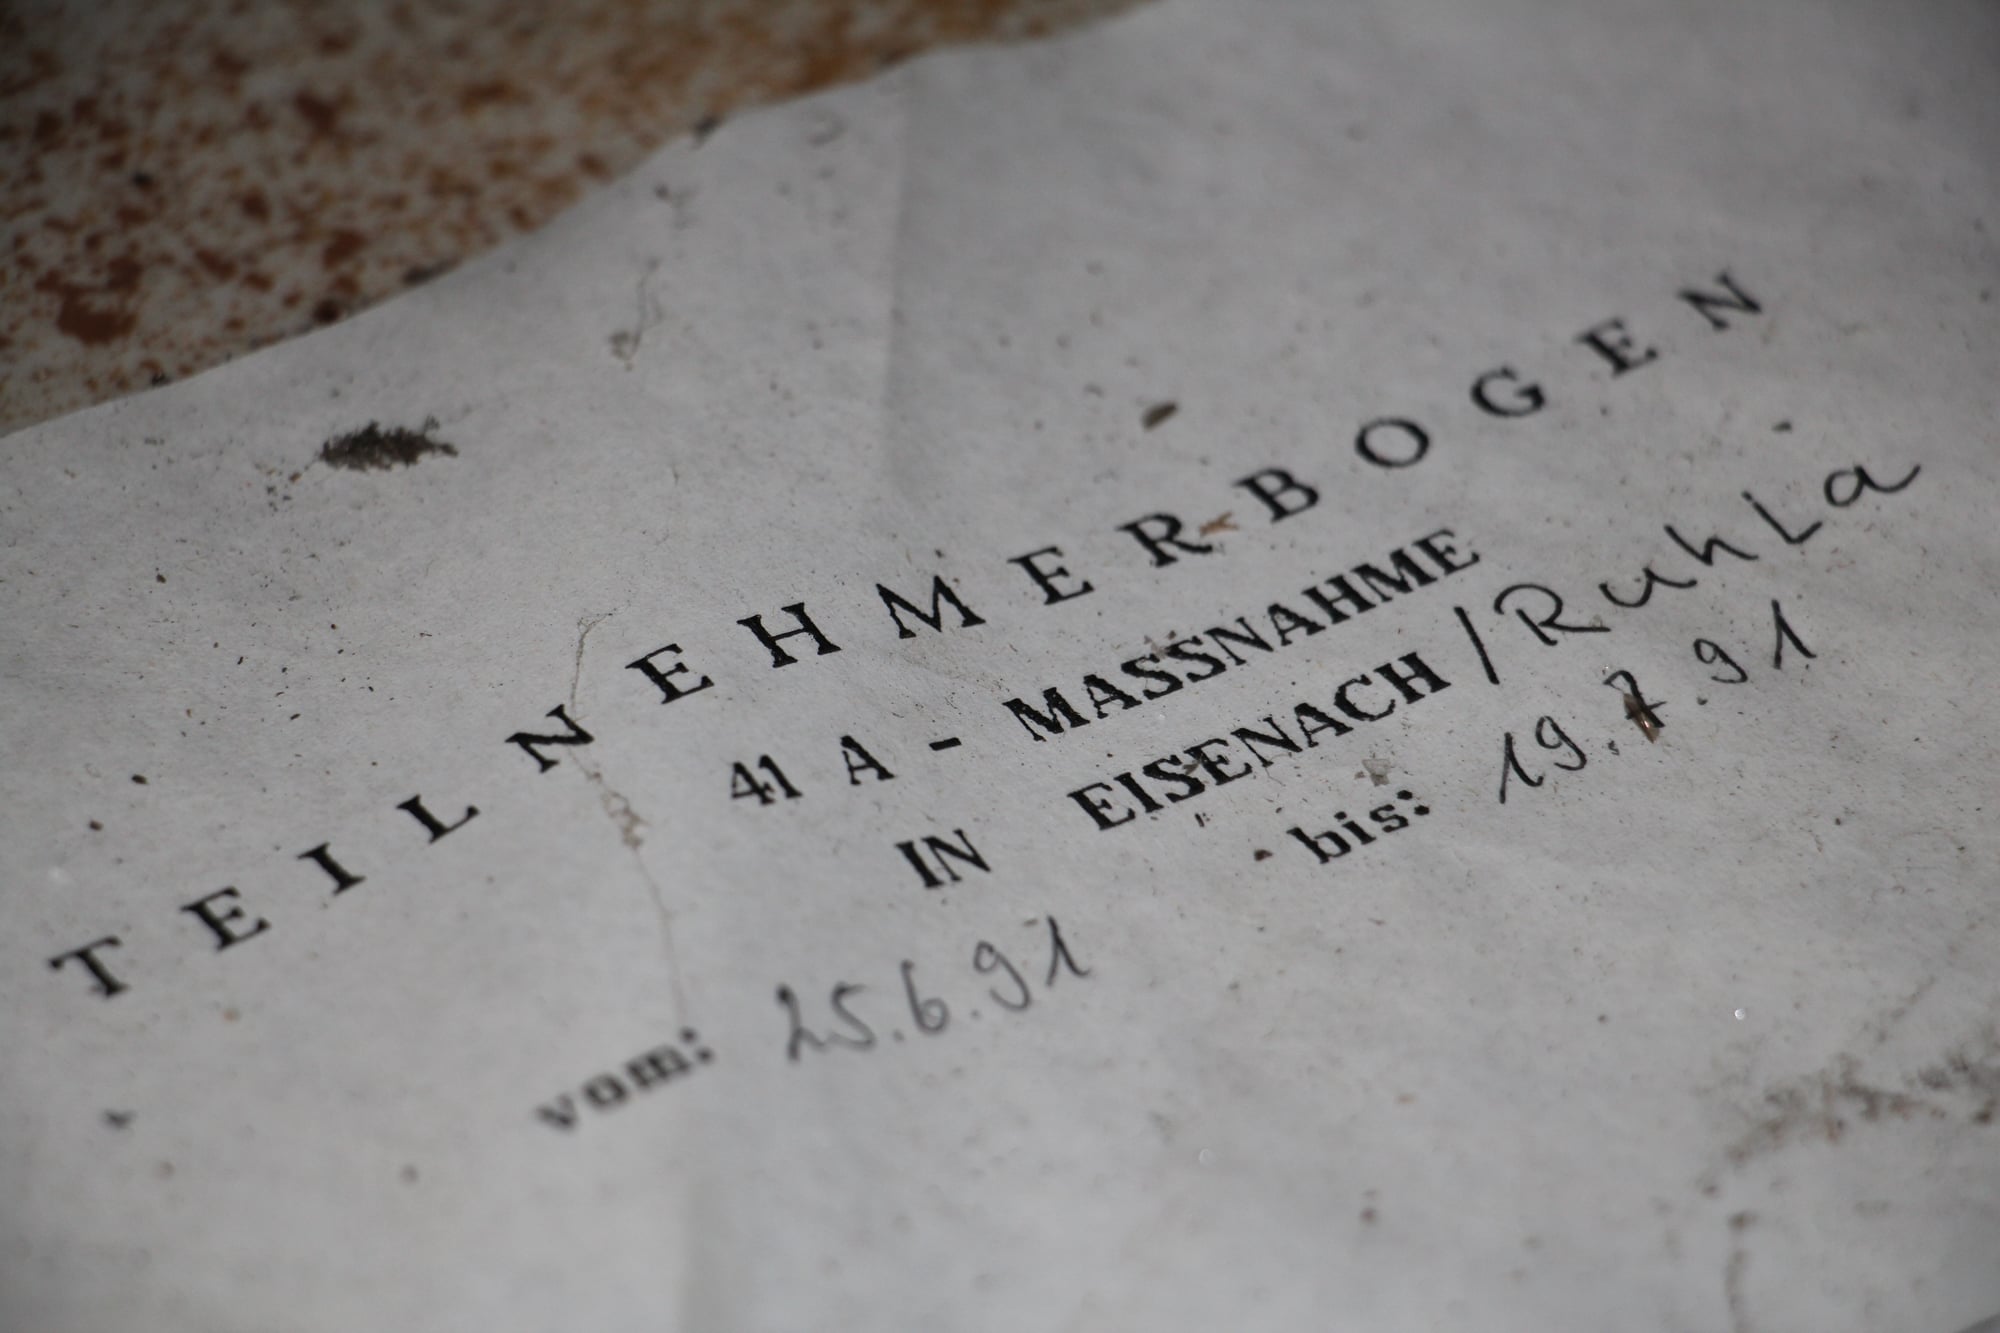 TEILNEHMERBOGEN
41 A - MASSNAHME
IN EISENACH / Ruhla
vom: 25.6.91 bis: 19.7.91